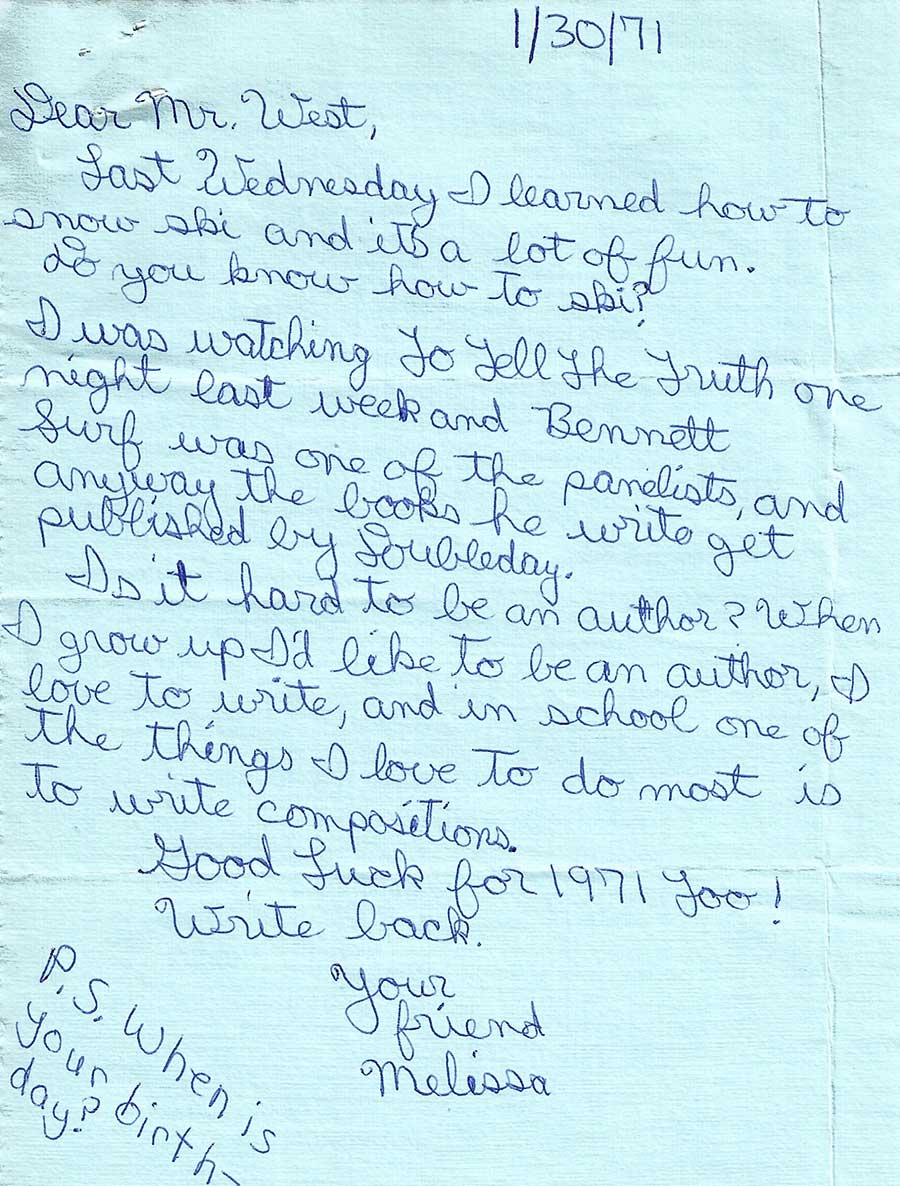 1/30/71
Dear Mr. West,
Last Wednesday I learned how to
snow ski and it's a lot of fun.
Do you know how to ski?
I was watching To Tell The Truth one
night last week and Bennett
Surf was one of the panelists, and
anyway the books he write get
published by Doubleday.
Is it hard to be an author? When
I grow up I'd like to be an author, I
love to write, and in school one of
the things I love to do most is
to write compositions.
Good Luck for 1971 Too!
Write back.
Your
friend
Melissa
P.S. When is
your birth-
day?